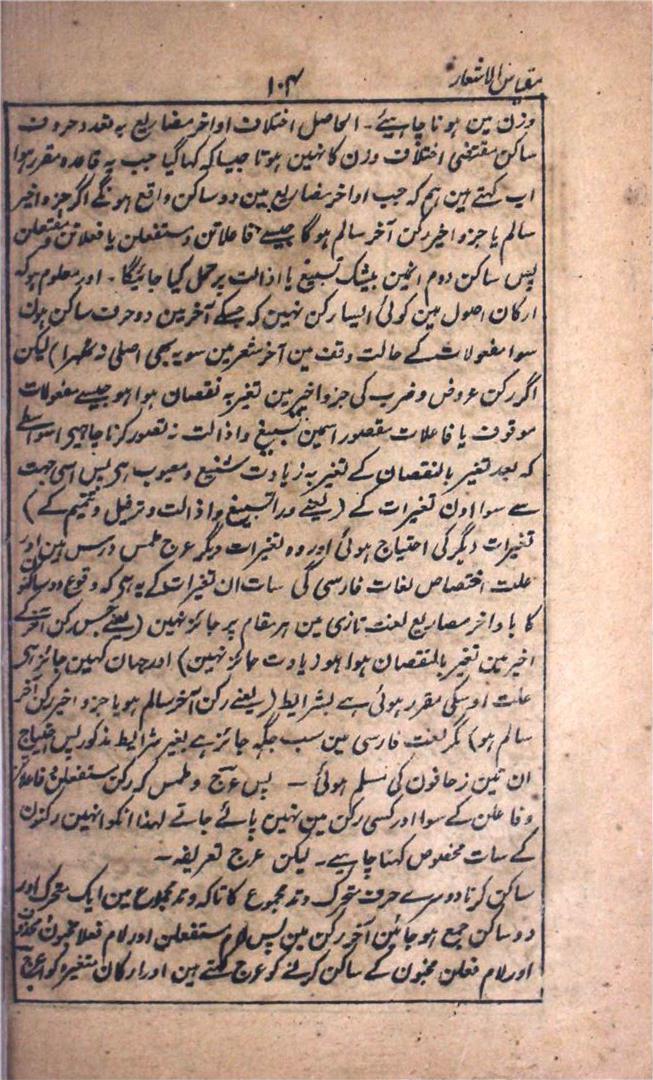 مقیاس الاشعار
۱۰۴
وزن مین ہونا چاہیے۔ الحاصل اختلاف اواخر مصاریع بہ تعدد حروف
ساکن مقتضی اختلاف وزن کا نہین ہوتا جیسا کہ کہا گیا جب یہ قاعدہ مقرر ہوا
اب کہتے ہین ہم کہ جب اواخر مصاریع مین دو ساکن واقع ہونگے اگر جزو اخیر
سالم یا جزو اخیر رکن آخر سالم ہوگا جیسے فاعلاتن و مستفعلن یا فعلاتن و مفتعلن
پس ساکن دوم انمین بیشک تسبیغ یا اذالت پر حمل کیا جائیگا۔ اور معلوم ہو کہ
ارکان اصول مین کوئی ایسا رکن نہین کہ جسکے آخر مین دو حرف ساکن ہون
سوا مفعولات کے حالت وقف مین آخر شعر مین سو یہ بھی اصلی نہ ٹھہرا) لیکن
اگر رکن عروض و ضرب کی جزو اخیر مین تغیر بہ نقصان ہوا ہو جیسے مفعولات
موقوف یا فاعلات مقصور اسمین تسبیغ و اذالت نہ تصور کرنا چاہیی اسواسطے
کہ بعد تغیر بالنقصان کے تغیر بہ زیادت شنیع و معیوب ہی پس اسی جہت
سے سوا اون تغیرات کے (یعنے ورا تسبیغ و اذالت و ترفیل و تتمیم کے)
تغیرات دیگر کی احتیاج ہوئی اور وہ تغیرات دیگر عرج طمس درس ہین اور
علت اختصاص لغات فارسی کی سات ان تغیرات کے یہ ہی کہ وقوع دو ساکنون
کا باواخر مصاریع لغت تازی مین ہر مقام پر جائز نہین (یعنے جس رکن آخر کے
اخیر مین تغیر بالنقصان ہوا ہو زیادت جائز نہین) اور جہان کہین جائز ہی
علت اوسکی مقرر ہوئی ہے بشرایط (یعنے رکن آخر سالم ہو یا جزو اخیر رکن آخر
سالم ہو) مگر لغت فارسی مین سب جگہہ جائز ہے بغیر شرایط مذکور پس احتیاج
ان تین زحافون کی مسلم ہوئی ۔ پس عرج و طمس کہ رکن مستفعلن و فاعلاتن
و فاعلن کے سوا اور کسی رکن مین نہین پائے جاتے لہذا انکو انہین رکنون
کے سات مخصوص کہنا چاہیے۔ لیکن عرج تعریفہ۔
ساکن کرنا دوسرے حرف متحرک وتد مجموع کا تاکہ وتد مجموع مین ایک متحرک اور
دو ساکن جمع ہو جائین آخر رکن مین پس لام مستفعلن اور لام فعلا مخبون محذوف
اور لام فعلن مخبون کے ساکن کرنے کو عرج کہتے ہین اور ارکان متغیرہ کو اعرج